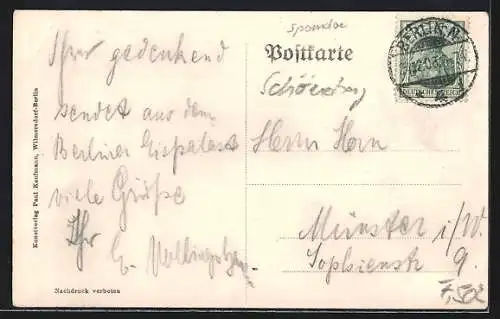 Ihrer gedenkend
sendet aus dem
Berliner Eispalast
viele Grüße
Ihr
Kunstverlag Paul Kaufmann, Wilmersdorf-Berlin
Nachdruck verboten
Postkarte
BERLIN
DEUTSCHES REICH
Herrn Horn
Münster i/W.
Sophienstr 9.
7,50€